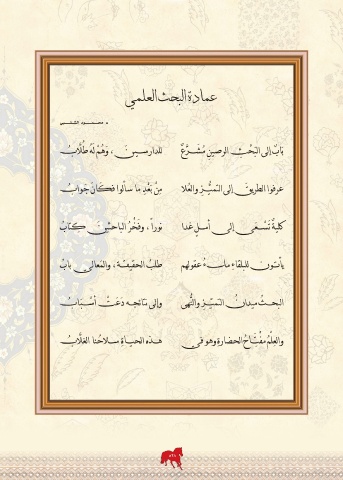 عمادة البحث العلمي
د. محمود الشلبي
بابٌ إلى البحْثِ الرصينِ مُشَرَّعٌ للدارسينَ، وَهُمْ لهُ طُلَّابُ
عرفوا الطريقَ إلى التميُّزِ والعُلا مِنْ بَعْدِ ما سألوا فكانَ جوابُ
كليةٌ تَسْعَى إلى أملٍ غدا نوراً، وفخْرُ الباحثينَ كتابُ
يأتونَ للبلقاءِ ملءَ عقولهم طلبُ الحقيقةِ، والمعالي بابُ
البحثُ ميدانُ التميّزِ والنُّهى وإلى نتائجِه دَعَتْ أسْبَابُ
والعِلْمُ مِفْتاحُ الحضارةِ وهو في هذه الحياةِ سلاحُنا الغلَّابُ